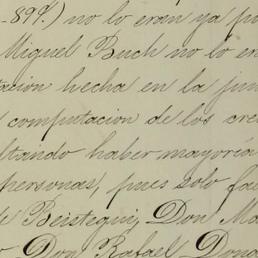 -894.) no lo eran ya po
Miguel Buch no lo er
tacion hecha en la jun
computacion de los cre
ltando haber mayoría
personas, pues solo fa
e Beistegui, Don Ma
Don Rafael Dono